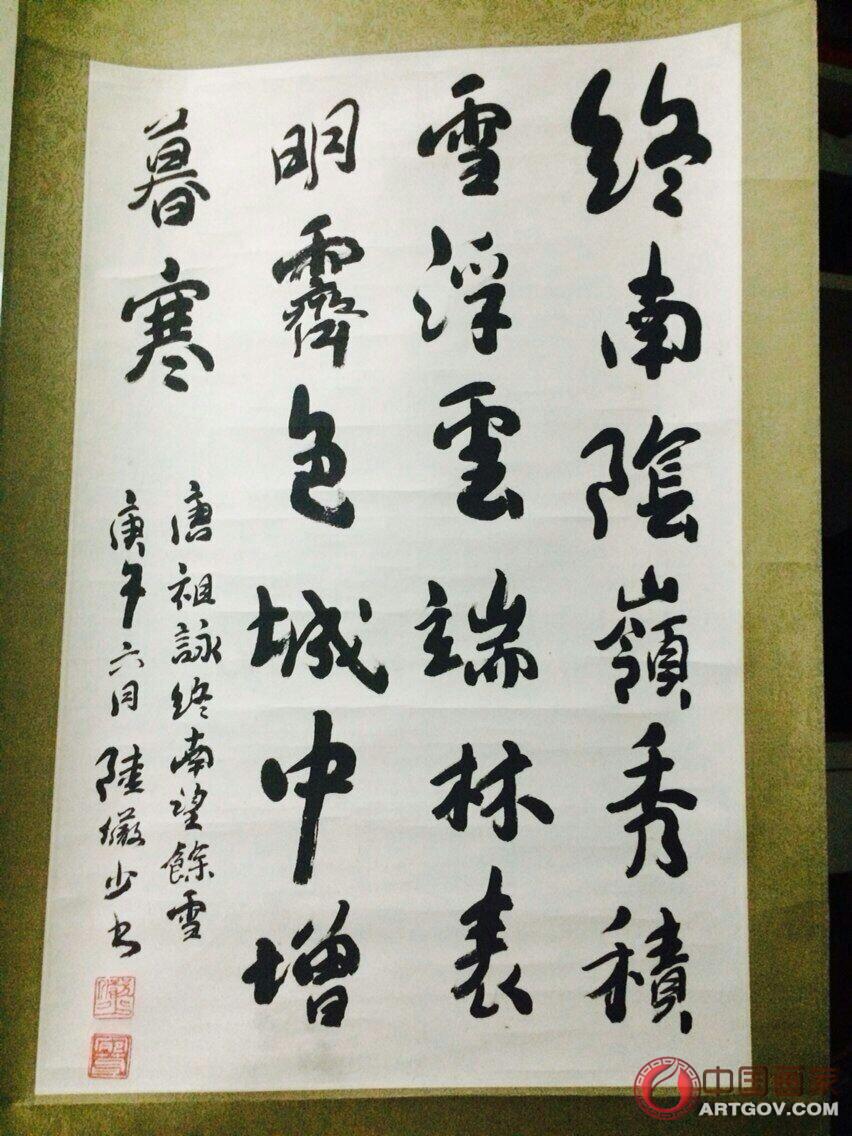 終南陰嶺秀積
雪浮雲端林表
明霽色城中增
暮寒
唐祖詠終南望餘雪
庚午六月陸儼少書
中国画家
ARTGOV.COM